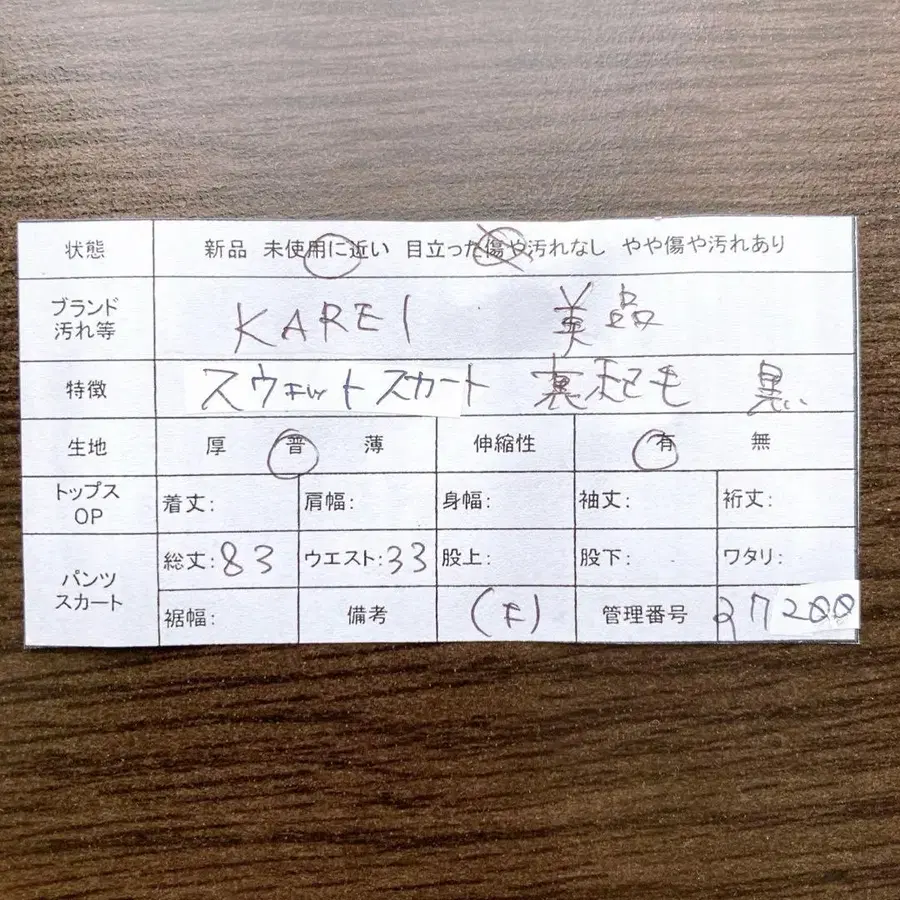 状態 新品 未使用に近い 目立った傷や汚れなし やや傷や汚れあり
ブランド
汚れ等 KAREI 美品
特徴 スウェットスカート 裏起毛 黒
生地 厚 普 薄 伸縮性 有 無
トップス
OP 着丈: 肩幅: 身幅: 袖丈: 裄丈:
パンツ
スカート 総丈:83 ウエスト:33 股上: 股下: ワタリ:
裾幅: 備考 管理番号 27200